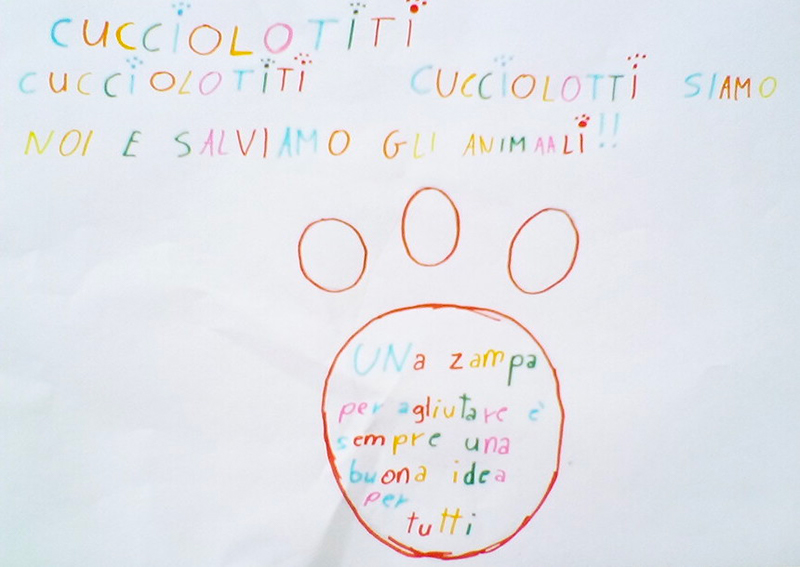 CUCCIOLOTITI
CUCCIOLOTITI CUCCIOLOTTI SIAMO
NOI E SALVIAMO GLI ANIMAALI!!
UNa zampa
per agliutare è
sempre una
buona idea
per
tutti